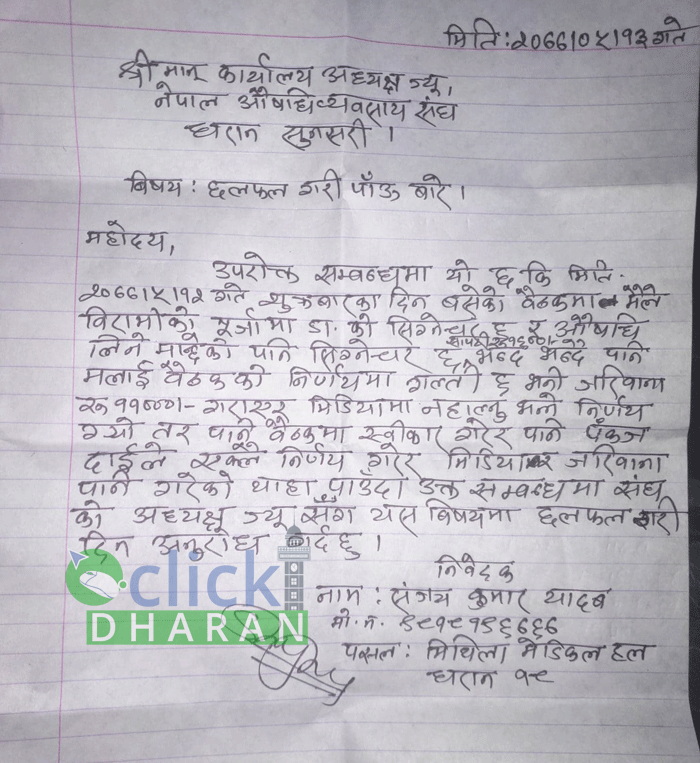 मिति: २०७७।०५।१३ गते
श्रीमान् कार्यालय अध्यक्ष ज्यू,
नेपाल औषधि व्यवसाय संघ
धरान सुनसरी ।
विषय : छलफल गरी पाँऊ बारे ।
महोदय,
उपरोक्त सम्बन्धमा यो छ कि मिति
२०७७।५।१२ गते शुक्रबारका दिन बसेको बैठकमा मैले
बिरामीको पूर्जामा डा. को सिग्नेचर छ र औषधि
लिने मान्छेको पनि सिग्नेचर छ भन्दै भन्दै पनि
मलाई बैठकको निर्णयमा गल्ती छ भनी जरिवाना
रू ११०००।- गराएर मिडियामा नहाल्नु भन्ने निर्णय
गर्यो तर पनि बैठकमा स्वीकार गरेर पनि पंकज
दाईले एक्लै निर्णय गरेर मिडिया र जरिवाना
पनि गरेको थाहा पाउँदा उक्त सम्बन्धमा संघ
को अध्यक्ष ज्यू सँग यस बिषयमा छलफल गरी
दिन अनुरोध गर्दछु ।
निवेदक
नाम : संजय कुमार यादव
मो. नं.
पसल : मिथिला मेडिकल हल
धरान १८
click
DHARAN